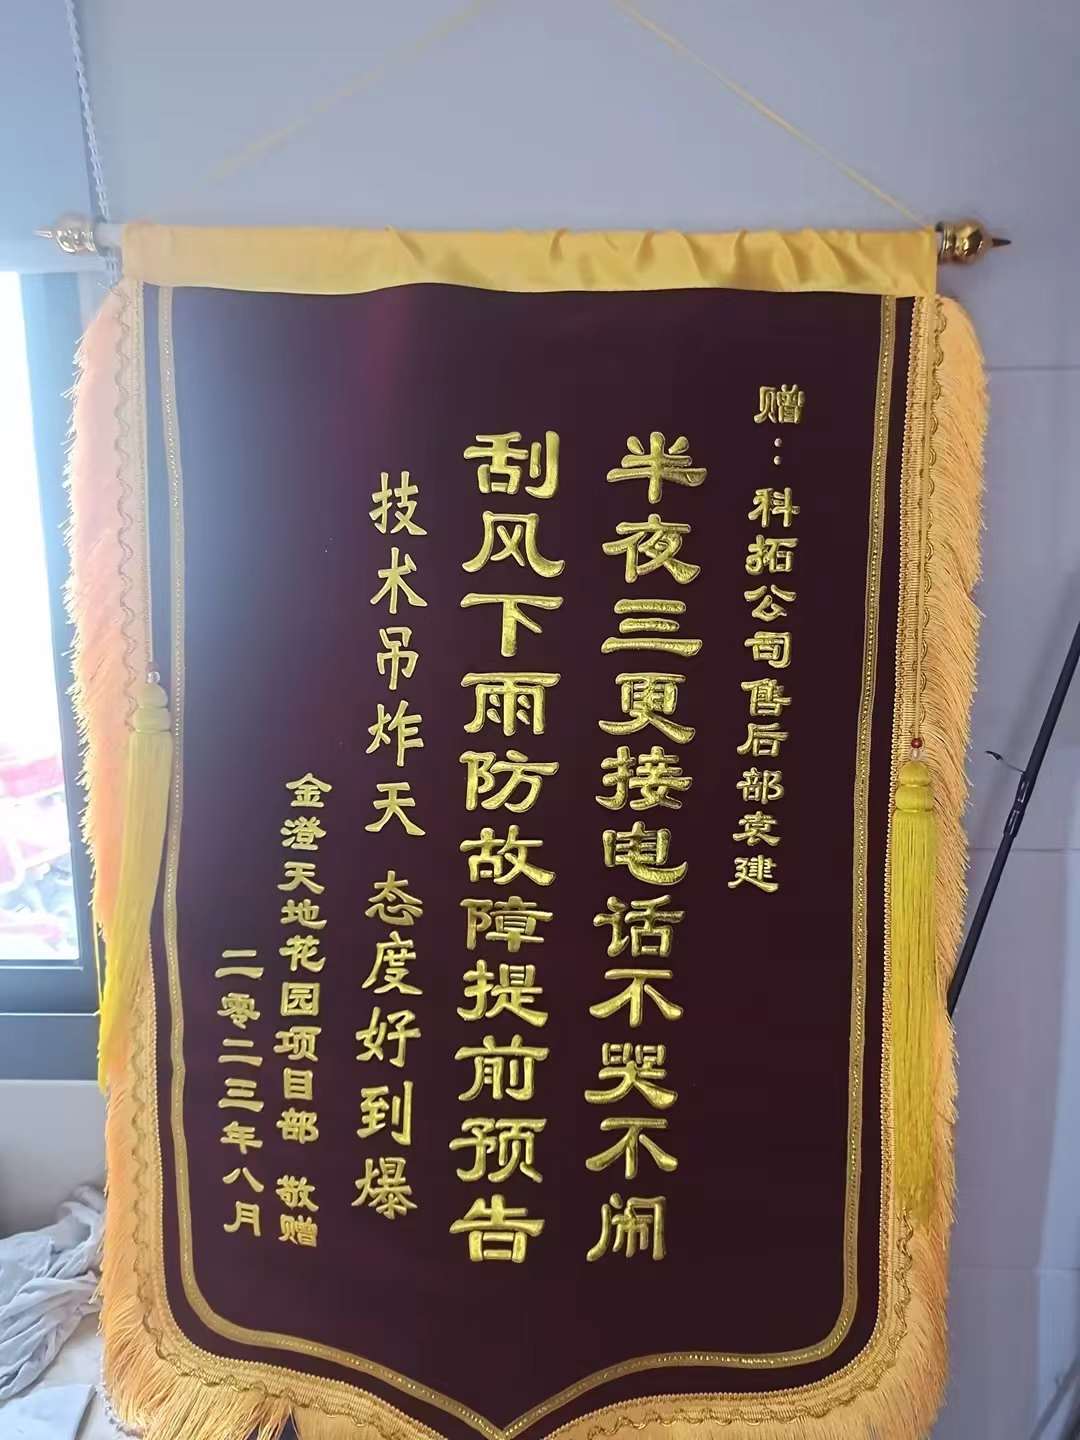 赠：科拓公司售后部袁建
半夜三更接电话不哭不闹
刮风下雨防故障提前预告
技术吊炸天 态度好到爆
金澄天地花园项目部 敬赠
二零二三年八月